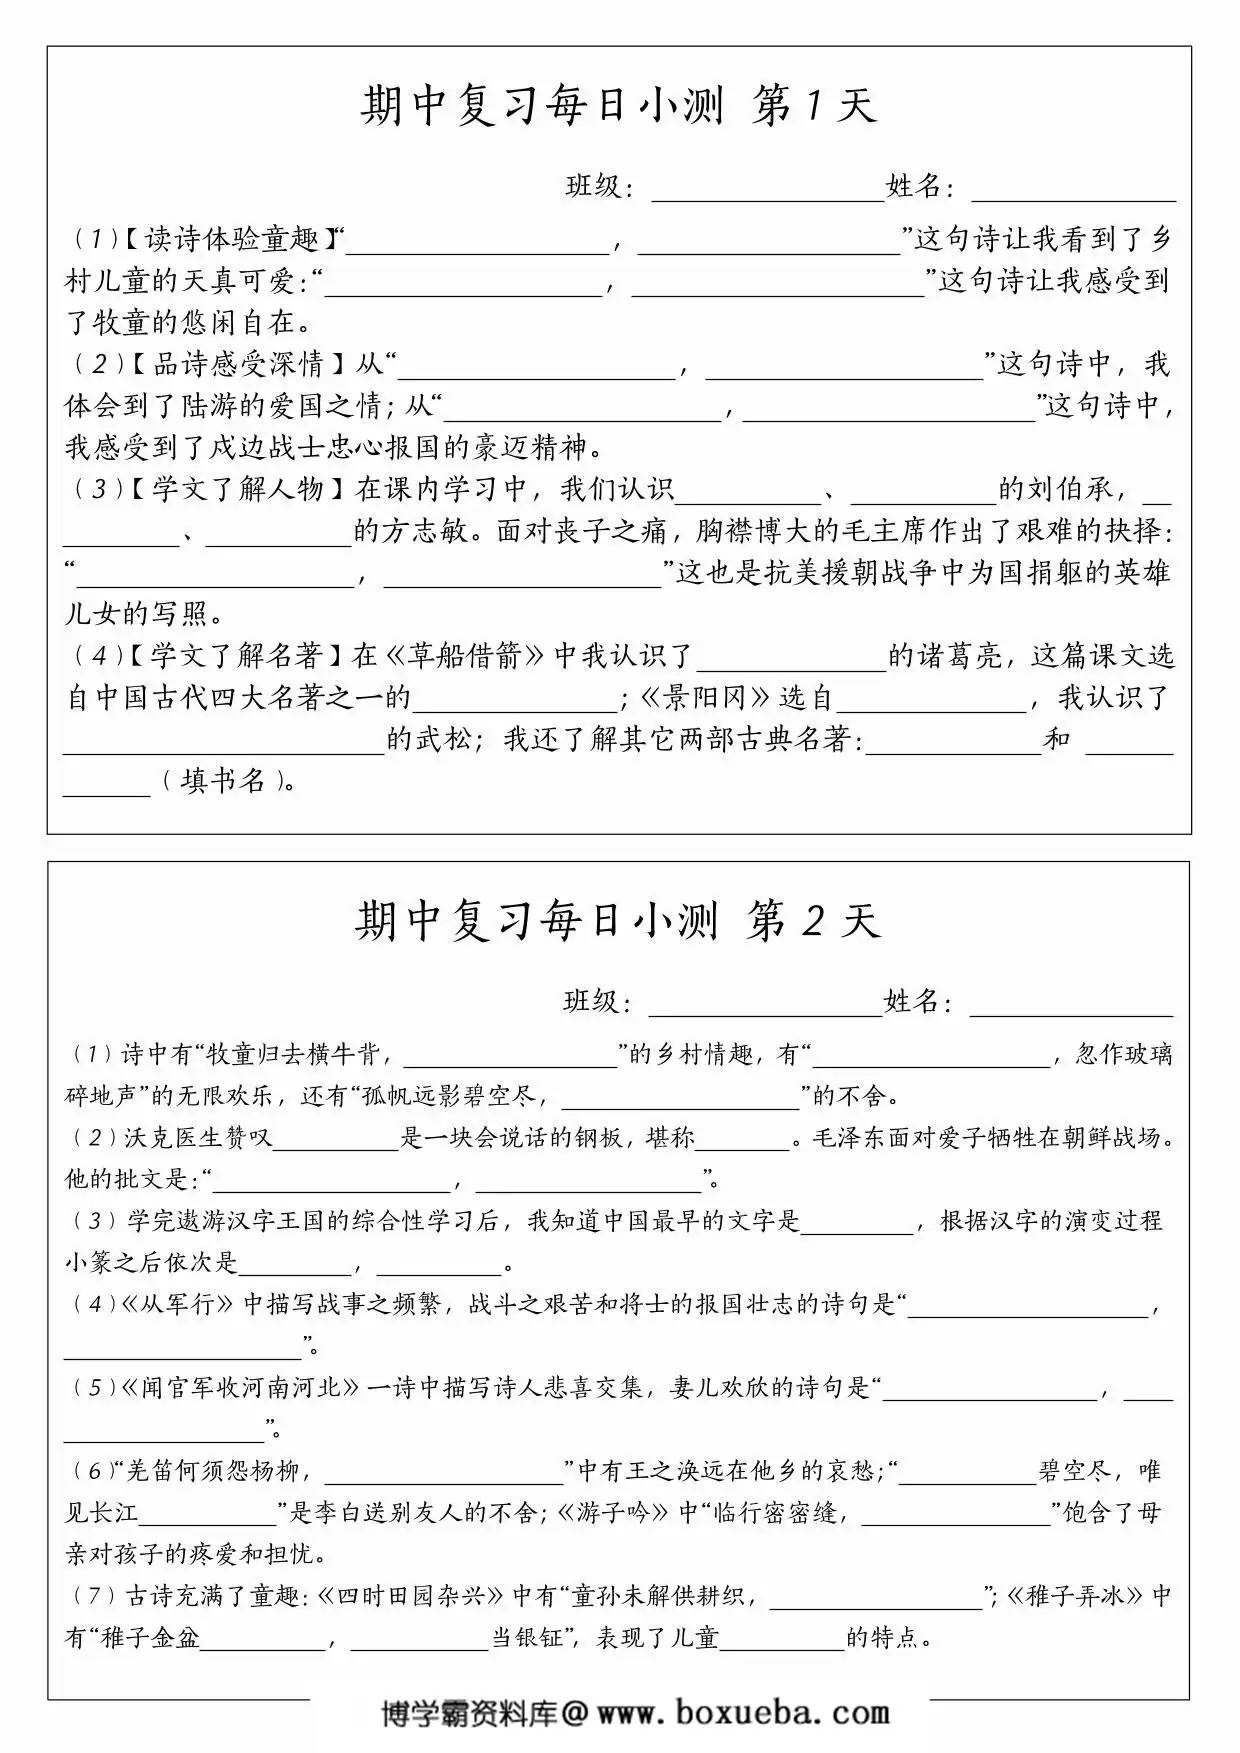 期中复习每日小测 第1天
班级：____________姓名：____________
（1）【读诗体验童趣】“____________，____________”这句诗让我看到了乡
村儿童的天真可爱：“____________，____________”这句诗让我感受到
了牧童的悠闲自在。
（2）【品诗感受深情】从“____________，____________”这句诗中，我
体会到了陆游的爱国之情；从“____________，____________”这句诗中，
我感受到了戍边战士忠心报国的豪迈精神。
（3）【学文了解人物】在课内学习中，我们认识________、________的刘伯承，__
______、________的方志敏。面对丧子之痛，胸襟博大的毛主席作出了艰难的抉择：
“____________，____________”这也是抗美援朝战争中为国捐躯的英雄
儿女的写照。
（4）【学文了解名著】在《草船借箭》中我认识了__________的诸葛亮，这篇课文选
自中国古代四大名著之一的__________；《景阳冈》选自__________，我认识了
________________的武松；我还了解其它两部古典名著：__________和 _____
_____（填书名）。
期中复习每日小测 第2天
班级：____________姓名：____________
（1）诗中有“牧童归去横牛背，____________”的乡村情趣，有“____________，忽作玻璃
碎地声”的无限欢乐，还有“孤帆远影碧空尽，____________”的不舍。
（2）沃克医生赞叹________是一块会说话的钢板，堪称______。毛泽东面对爱子牺牲在朝鲜战场。
他的批文是：“____________，____________”。
（3）学完遨游汉字王国的综合性学习后，我知道中国最早的文字是_______，根据汉字的演变过程
小篆之后依次是_______，_______。
（4）《从军行》中描写战事之频繁，战斗之艰苦和将士的报国壮志的诗句是“____________，
____________”。
（5）《闻官军收河南河北》一诗中描写诗人悲喜交集，妻儿欢欣的诗句是“____________，___
__________”。
（6）“羌笛何须怨杨柳，____________”中有王之涣远在他乡的哀愁；“________碧空尽，唯
见长江________”是李白送别友人的不舍；《游子吟》中“临行密密缝，__________”饱含了母
亲对孩子的疼爱和担忧。
（7）古诗充满了童趣：《四时田园杂兴》中有“童孙未解供耕织，____________”；《稚子弄冰》中
有“稚子金盆________，________当银钲”，表现了儿童________的特点。
博学霸资料库@www.boxueba.com